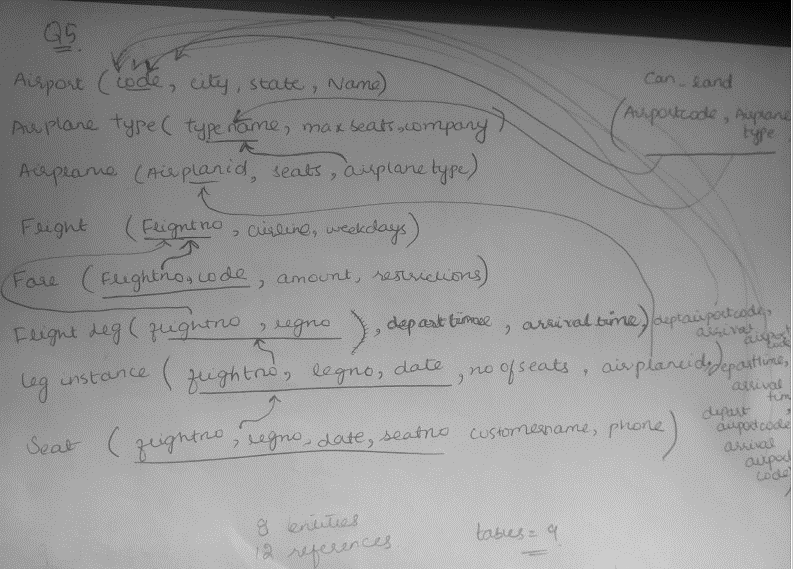 Q5.
Airport (code, city, state, Name)
Can_land
(Airportcode, Airplane
type
Airplane type (typename, max seats, company)
Airplane (Airplanid, seats, airplane type)
Flight (Flightno, airline, weekdays)
Fare (Flightno, code, amount, restrictions)
Flight leg (flightno, legno), depart time, arrival time) deptairportcode,
arrival
airport
code
Leg instance (flightno, legno, date, no of seats, airplaneid,) departtime,
arrival
tim
depart
airportcode
arrival
airport
code)
Seat (flightno, legno, date, seatno customername, phone)
8 entities
12 references
tables = 9